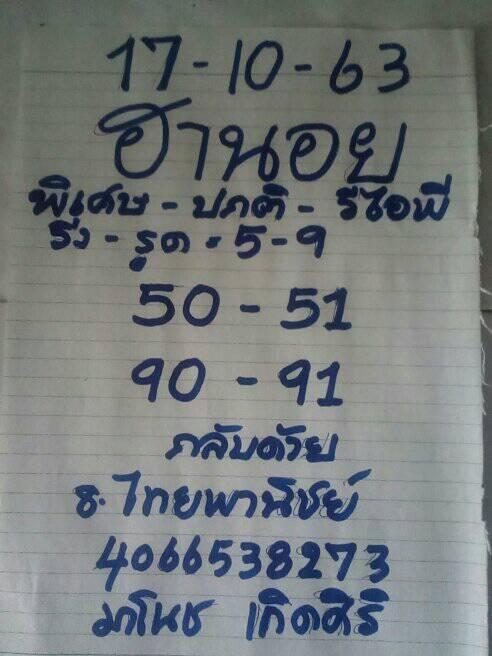 17-10-63
ฮานอย
พิเศษ - ปกติ - วีไอพี
วิ่ง - รูด = 5-9
50 - 51
90 - 91
กลับด้วย
ธ. ไทยพานิชย์
4066538273
มาโนช เกิดศิริ